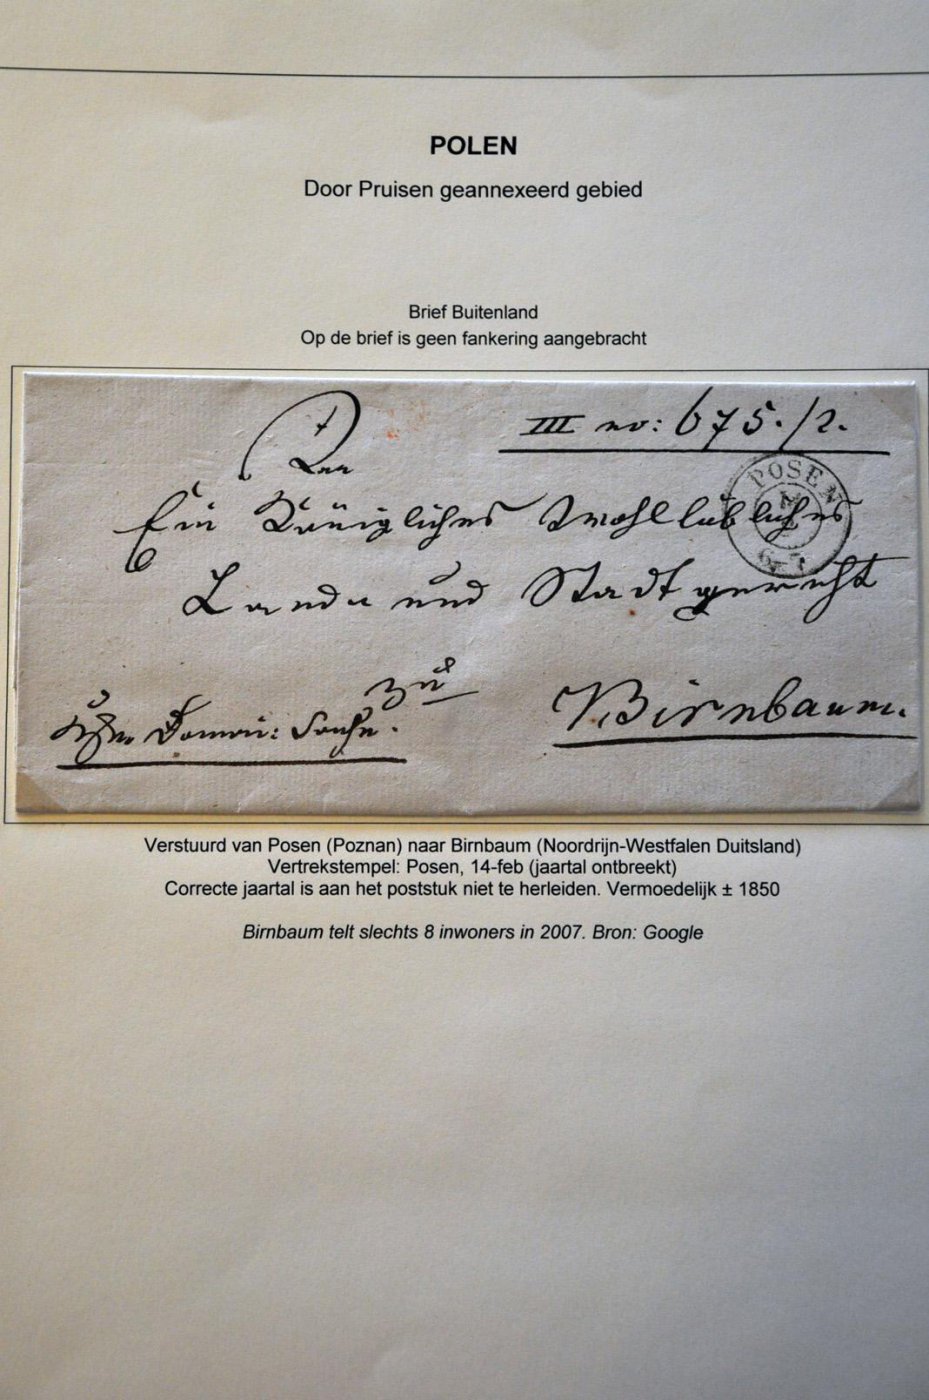 POLEN
Door Pruisen geannexeerd gebied
Brief Buitenland
Op de brief is geen fankering aangebracht
III no: 675./2.
An
POSEN
Ein Königliches Wohllöbliches
Land- und Stadtgericht
zu
Birnbaum.
Verstuurd van Posen (Poznan) naar Birnbaum (Noordrijn-Westfalen Duitsland)
Vertrekstempel: Posen, 14-feb (jaartal ontbreekt)
Correcte jaartal is aan het poststuk niet te herleiden. Vermoedelijk ± 1850
Birnbaum telt slechts 8 inwoners in 2007. Bron: Google